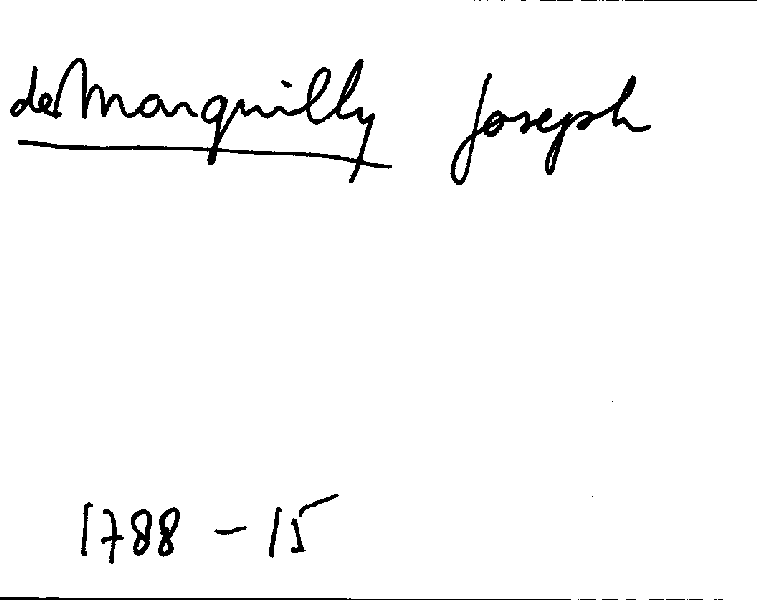 de Marquilly Joseph
1788 - 15